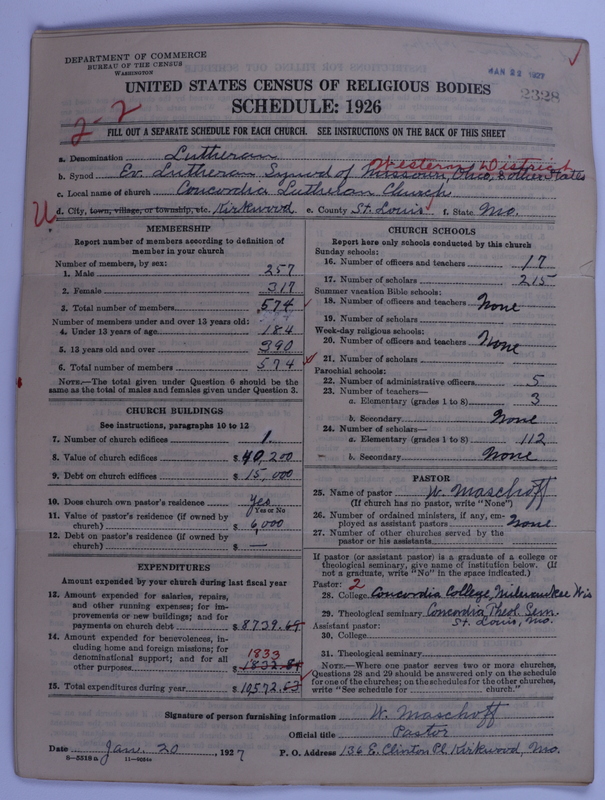 DEPARTMENT OF COMMERCE
BUREAU OF THE CENSUS
WASHINGTON
JAN 22 1927
2328
UNITED STATES CENSUS OF RELIGIOUS BODIES
SCHEDULE: 1926
2-2
FILL OUT A SEPARATE SCHEDULE FOR EACH CHURCH. SEE INSTRUCTIONS ON THE BACK OF THIS SHEET
a. Denomination Lutheran
Western District
b. Synod Ev. Lutheran Synod of Missouri, Ohio, & other States
c. Local name of church Concordia Lutheran Church
U d. City, town, village, or township, etc. Kirkwood e. County St. Louis f. State Mo.
MEMBERSHIP
Report number of members according to definition of
member in your church
Number of members, by sex:
1. Male 257
2. Female 317
3. Total number of members 574
Number of members under and over 13 years old:
4. Under 13 years of age 184
5. 13 years old and over 390
6. Total number of members 574
NOTE.—The total given under Question 6 should be the
same as the total of males and females given under Question 3.
CHURCH BUILDINGS
See instructions, paragraphs 10 to 12
7. Number of church edifices 1.
8. Value of church edifices $ 40,200
9. Debt on church edifices $ 15,000
10. Does church own pastor's residence Yes
Yes or No
11. Value of pastor's residence (if owned by
church) $ 6,000
12. Debt on pastor's residence (if owned by
church) $ —
EXPENDITURES
Amount expended by your church during last fiscal year
13. Amount expended for salaries, repairs,
and other running expenses; for im-
provements or new buildings; and for
payments on church debt $ 8739.69
14. Amount expended for benevolences, in-
cluding home and foreign missions; for
denominational support; and for all
1833
other purposes $ 1832.84
15. Total expenditures during year $ 10,572.53
CHURCH SCHOOLS
Report here only schools conducted by this church
Sunday schools:
16. Number of officers and teachers 17
17. Number of scholars 215
Summer vacation Bible schools:
18. Number of officers and teachers None
19. Number of scholars
Week-day religious schools:
20. Number of officers and teachers None
21. Number of scholars
Parochial schools:
22. Number of administrative officers 5
23. Number of teachers—
a. Elementary (grades 1 to 8) 3
b. Secondary None
24. Number of scholars—
a. Elementary (grades 1 to 8) 112
b. Secondary None
PASTOR
25. Name of pastor W. Maschoff
(If church has no pastor, write "None")
26. Number of ordained ministers, if any, em-
ployed as assistant pastors None
27. Number of other churches served by the
pastor or his assistants
If pastor (or assistant pastor) is a graduate of a college or
theological seminary, give name of institution below. (If
not a graduate, write "No" in the space indicated.)
Pastor: 2
28. College Concordia College, Milwaukee Wis
29. Theological seminary Concordia Theol. Sem.
Assistant pastor: St. Louis, Mo.
30. College
31. Theological seminary
NOTE.—Where one pastor serves two or more churches,
Questions 28 and 29 should be answered only on the schedule
for one of the churches; on the schedules for the other churches,
write "See schedule for church."
Signature of person furnishing information W. Maschoff
Official title Pastor
Date Jan. 20, 1927 P. O. Address 136 E. Clinton Pl. Kirkwood, Mo.